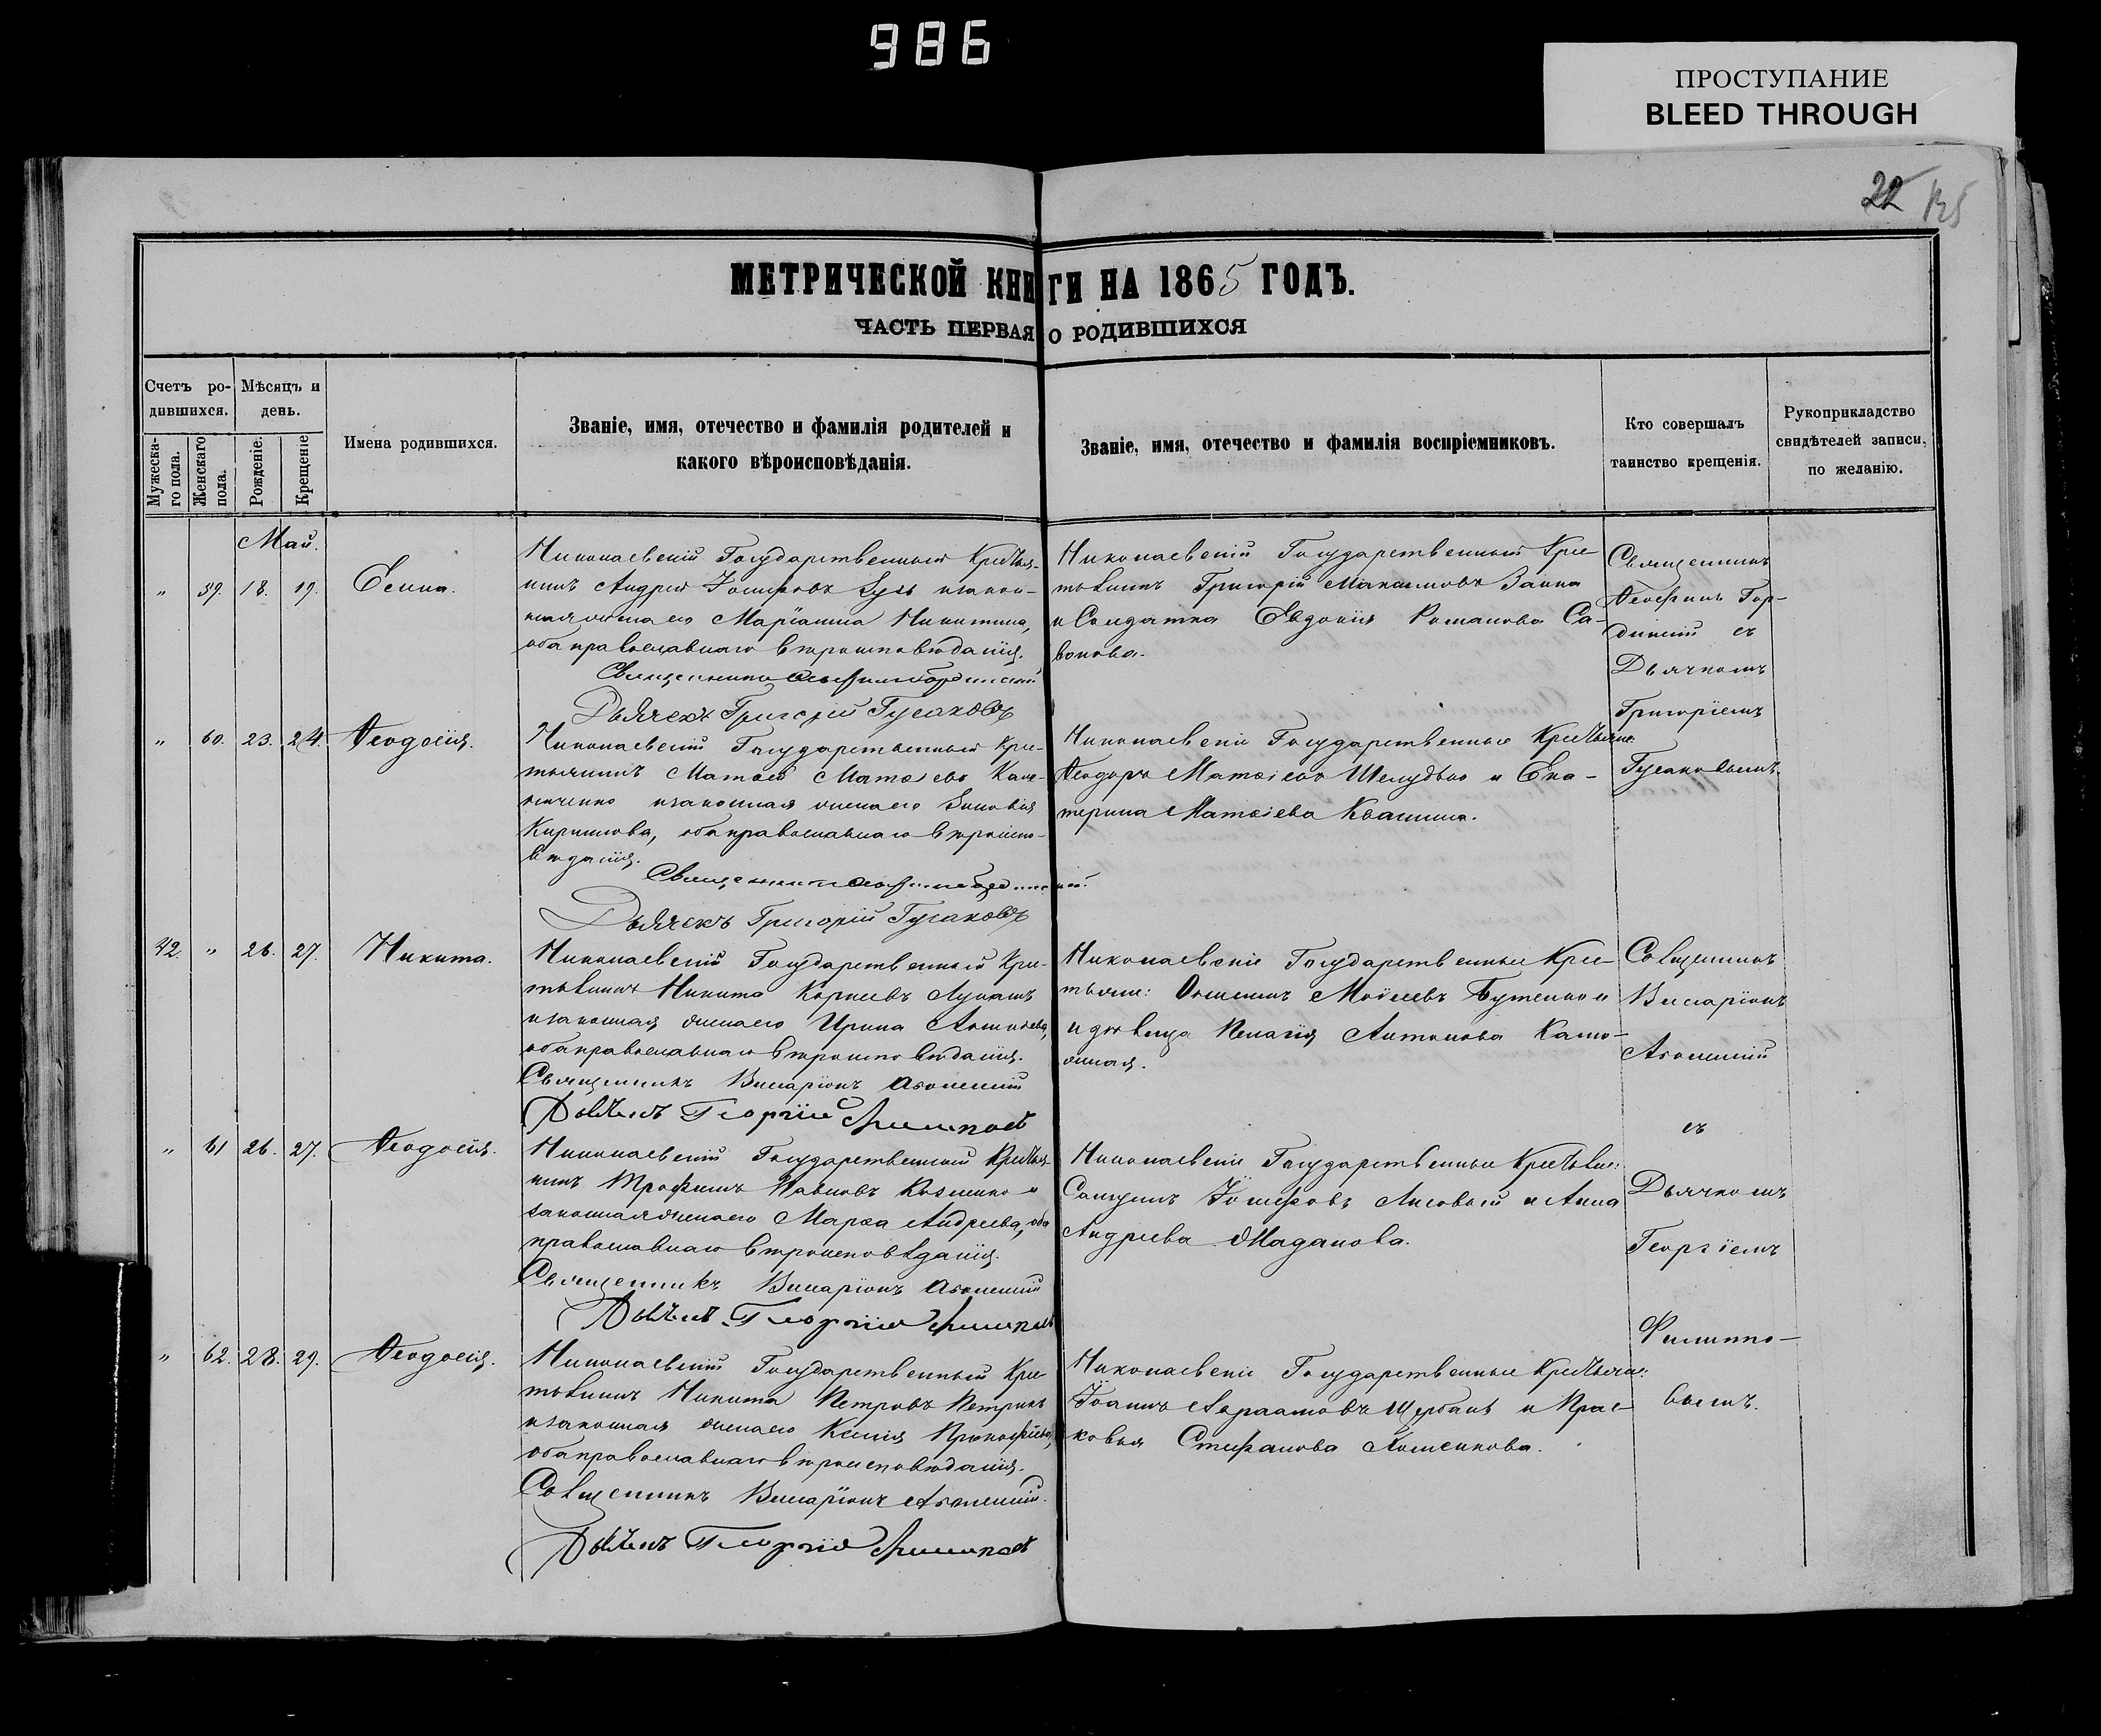 986
ПРОСТУПАНИЕ
BLEED THROUGH
22
МЕТРИЧЕСКОЙ КНИГИ НА 1865 ГОДЪ.
ЧАСТЬ ПЕРВАЯ О РОДИВШИХСЯ
Счетъ ро-
дившихся.
Мужеска-
го пола.
Женскаго
пола.
Мѣсяцъ и
день.
Рожденіе.
Крещеніе
Имена родившихся.
Званіе, имя, отечество и фамилія родителей и
какого вѣроисповѣданія.
Званіе, имя, отечество и фамилія воспріемниковъ.
Кто совершалъ
таинство крещенія.
Рукоприкладство
свидѣтелей записи,
по желанію.
Май.
" 59. 18. 19.
Николаевскій Государственный Крестья-
нинъ Андрей Іосифовъ и закон-
ная жена его Маріанна Никитина,
оба православнаго вѣроисповѣданія.
Священникъ
Дьячекъ Григорій Гусаковъ
Николаевскій Государственный Кре-
стьянинъ Григорій Максимовъ Заика
и Солдатка Евдокія Романова Са-
вонова.
Священникъ
Ѳеофилъ Гор-
динскій съ
Дьячкомъ
Григоріемъ
Гусаковымъ.
" 60. 23. 24. Ѳеодосія.
Николаевскій Государственный Кре-
стьянинъ Матѳей Матѳіевъ
и законная жена его Зиновія
Кирилова, оба православнаго вѣроиспо-
вѣданія.
Священникъ
Дьячекъ Григорій Гусаковъ
Николаевскіе Государственные Крестьяне:
Ѳеодоръ Матѳіевъ Шелудько и Ека-
терина Матѳіева Квашина.
42. " 26. 27. Никита.
Николаевскій Государственный Кре-
стьянинъ Никита Корнѣевъ Лукашъ
и законная жена его Ирина
оба православнаго вѣроисповѣданія.
Священникъ Виссаріонъ
Дьячекъ Георгій
Николаевскіе Государственные Кре-
стьяне: Моисеевъ Бутенко и
и дѣвица Пелагія Антонова
Священникъ
Виссаріонъ
съ
Дьячкомъ
Георгіемъ
Филиппо-
вымъ.
" 61 26. 27. Ѳеодосія.
Николаевскій Государственный Крестья-
нинъ Трофимъ Павловъ Козленко и
законная жена его Марѳа Андреева, оба
православнаго вѣроисповѣданія.
Священникъ Виссаріонъ
Дьячекъ Георгій
Николаевскіе Государственные Крестьяне:
Іосифовъ Лисовый и Анна
Андреева Маданова.
" 62. 28. 29. Ѳеодосія.
Николаевскій Государственный Кре-
стьянинъ Никита Петровъ Петрикъ
и законная жена его Ксенія Прокофіева,
оба православнаго вѣроисповѣданія.
Священникъ Виссаріонъ
Дьячекъ Георгій
Николаевскіе Государственные Крестьяне:
Іоаннъ Авраамовъ Щербакъ и Прас-
ковья Стефанова